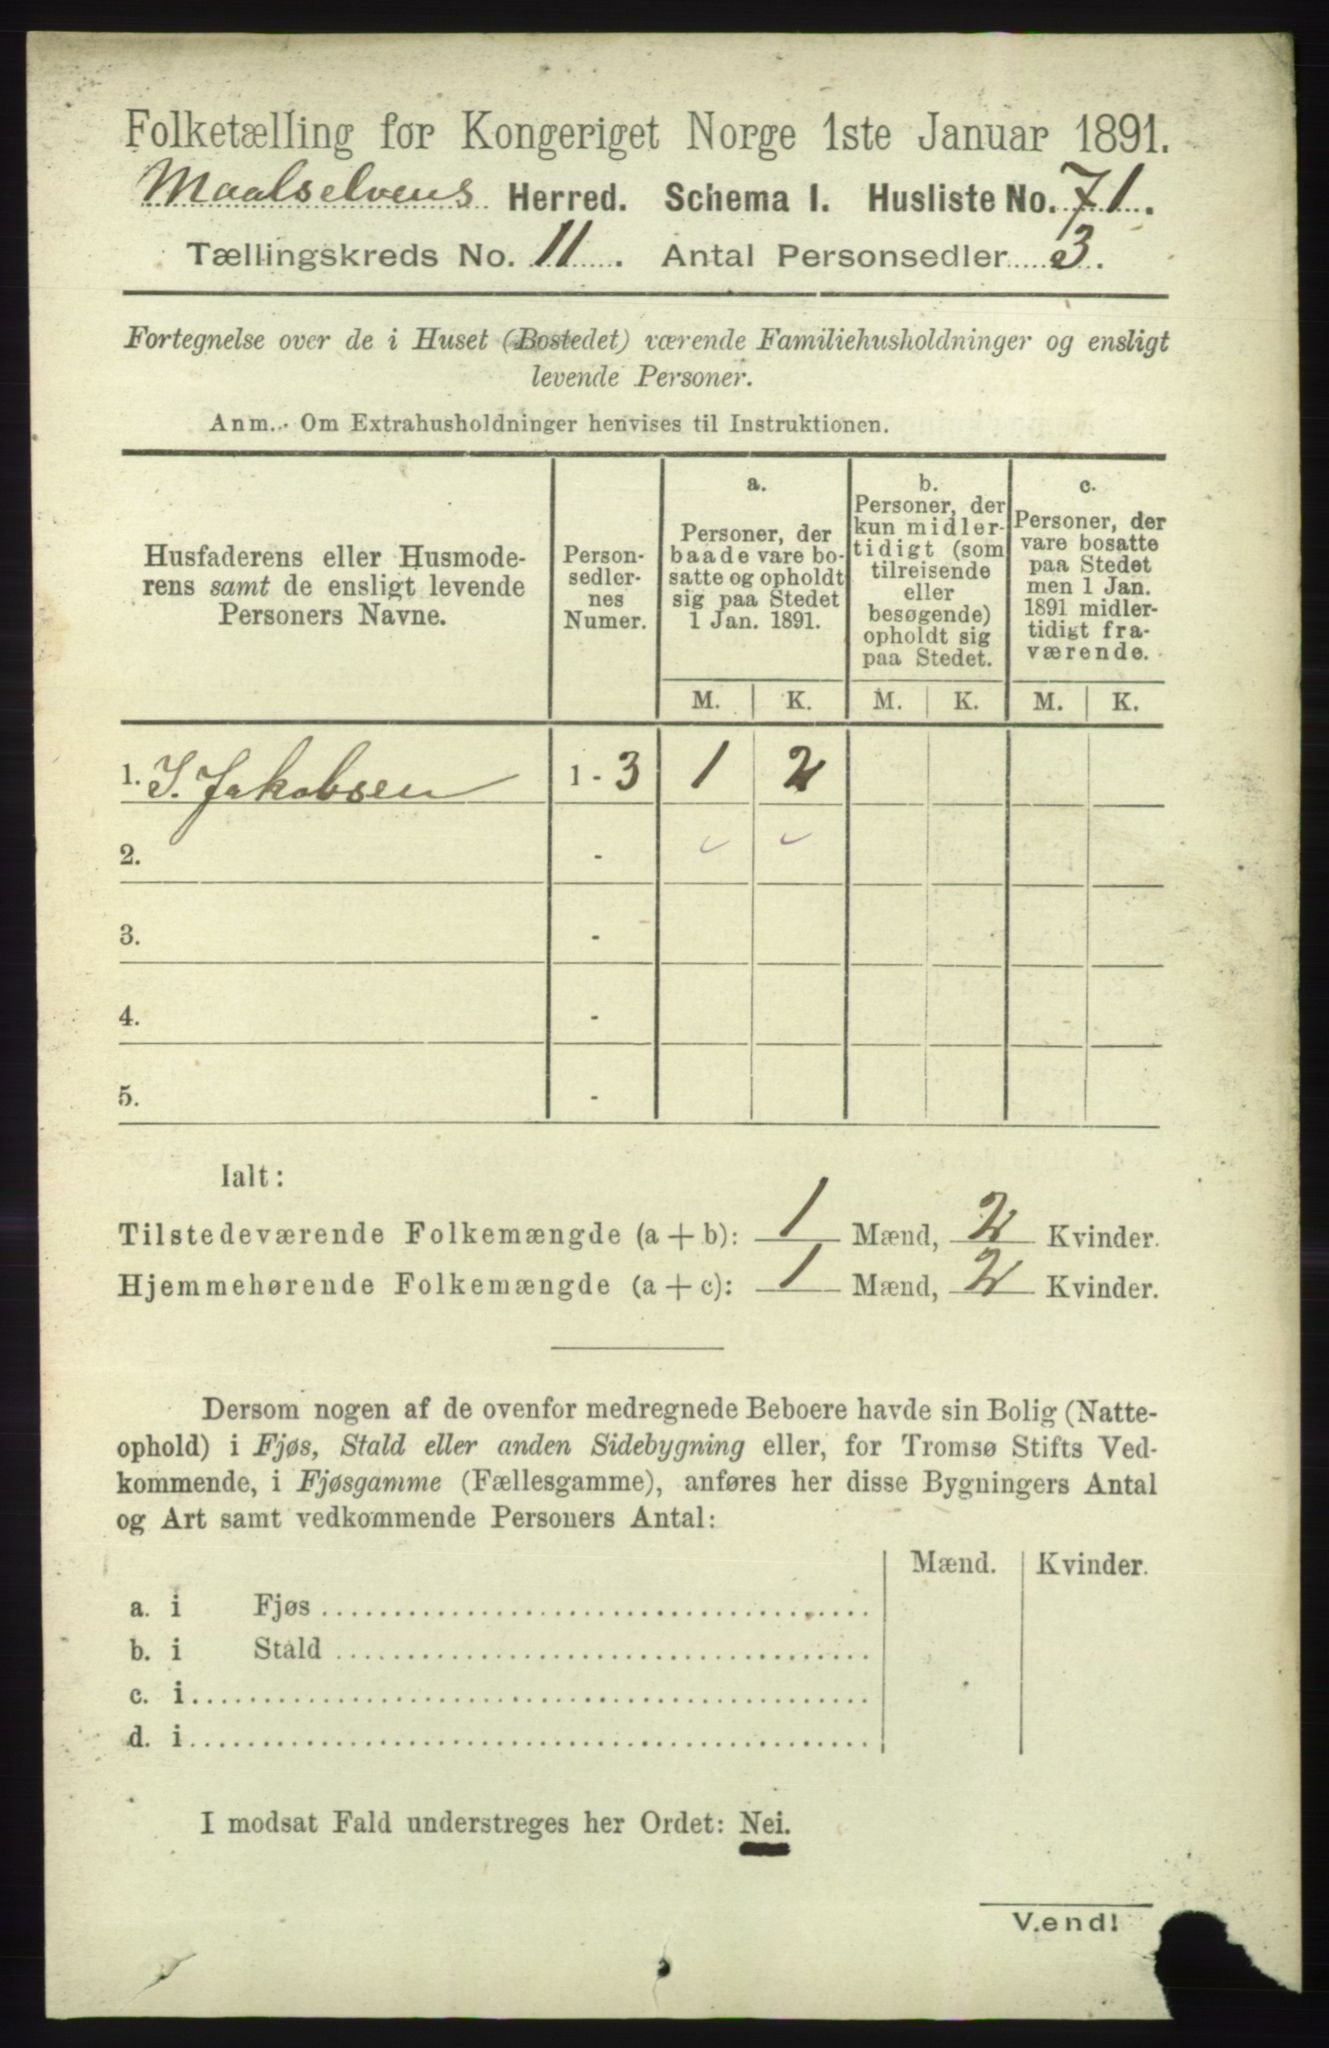 Folketælling for Kongeriget Norge 1ste Januar 1891.
Maalselvens Herred. Schema I. Husliste No. 71.
Tællingskreds No. 11. Antal Personsedler 3.
Fortegnelse over de i Huset (Bostedet) værende Familiehusholdninger og ensligt
levende Personer.
Anm. Om Extrahusholdninger henvises til Instruktionen.
Husfaderens eller Husmode-
rens samt de ensligt levende
Personers Navne.
Person-
sedler-
nes
Numer.
a.
Personer, der
baade vare bo-
satte og opholdt
sig paa Stedet
1 Jan. 1891.
b.
Personer, der
kun midler-
tidigt (som
tilreisende
eller
besøgende)
opholdt sig
paa Stedet.
c.
Personer, der
vare bosatte
paa Stedet
men 1 Jan.
1891 midler-
tidigt fra-
værende.
M. K. M. K. M. K.
1. I. Jakobsen 1 - 3 1 2
2. -
3. -
4. -
5. -
Ialt:
Tilstedeværende Folkemængde (a + b): 1 Mænd, 2 Kvinder.
Hjemmehørende Folkemængde (a + c): 1 Mænd, 2 Kvinder.
Dersom nogen af de ovenfor medregnede Beboere havde sin Bolig (Natte-
ophold) i Fjøs, Stald eller anden Sidebygning eller, for Tromsø Stifts Ved-
kommende, i Fjøsgamme (Fællesgamme), anføres her disse Bygningers Antal
og Art samt vedkommende Personers Antal:
Mænd. Kvinder.
a. i Fjøs
b. i Stald
c. i
d. i
I modsat Fald understreges her Ordet: Nei.
Vend!